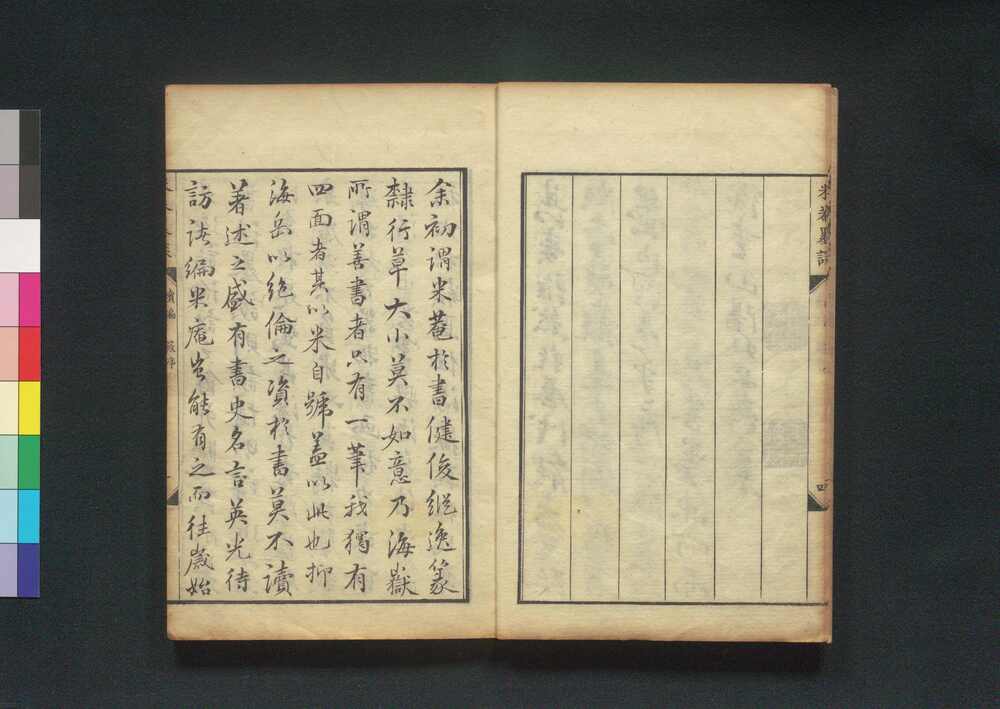 米葊墨談
四
余初謂米菴於書健俊縱逸篆
隸行草大小莫不如意乃海嶽
所謂善書者只有一筆我獨有
四面者其以米自號蓋以此也抑
海岳以絶倫之資於書莫不讀
著述之盛有書史名言英光待
訪诸編米庵皆能有之而往歲始